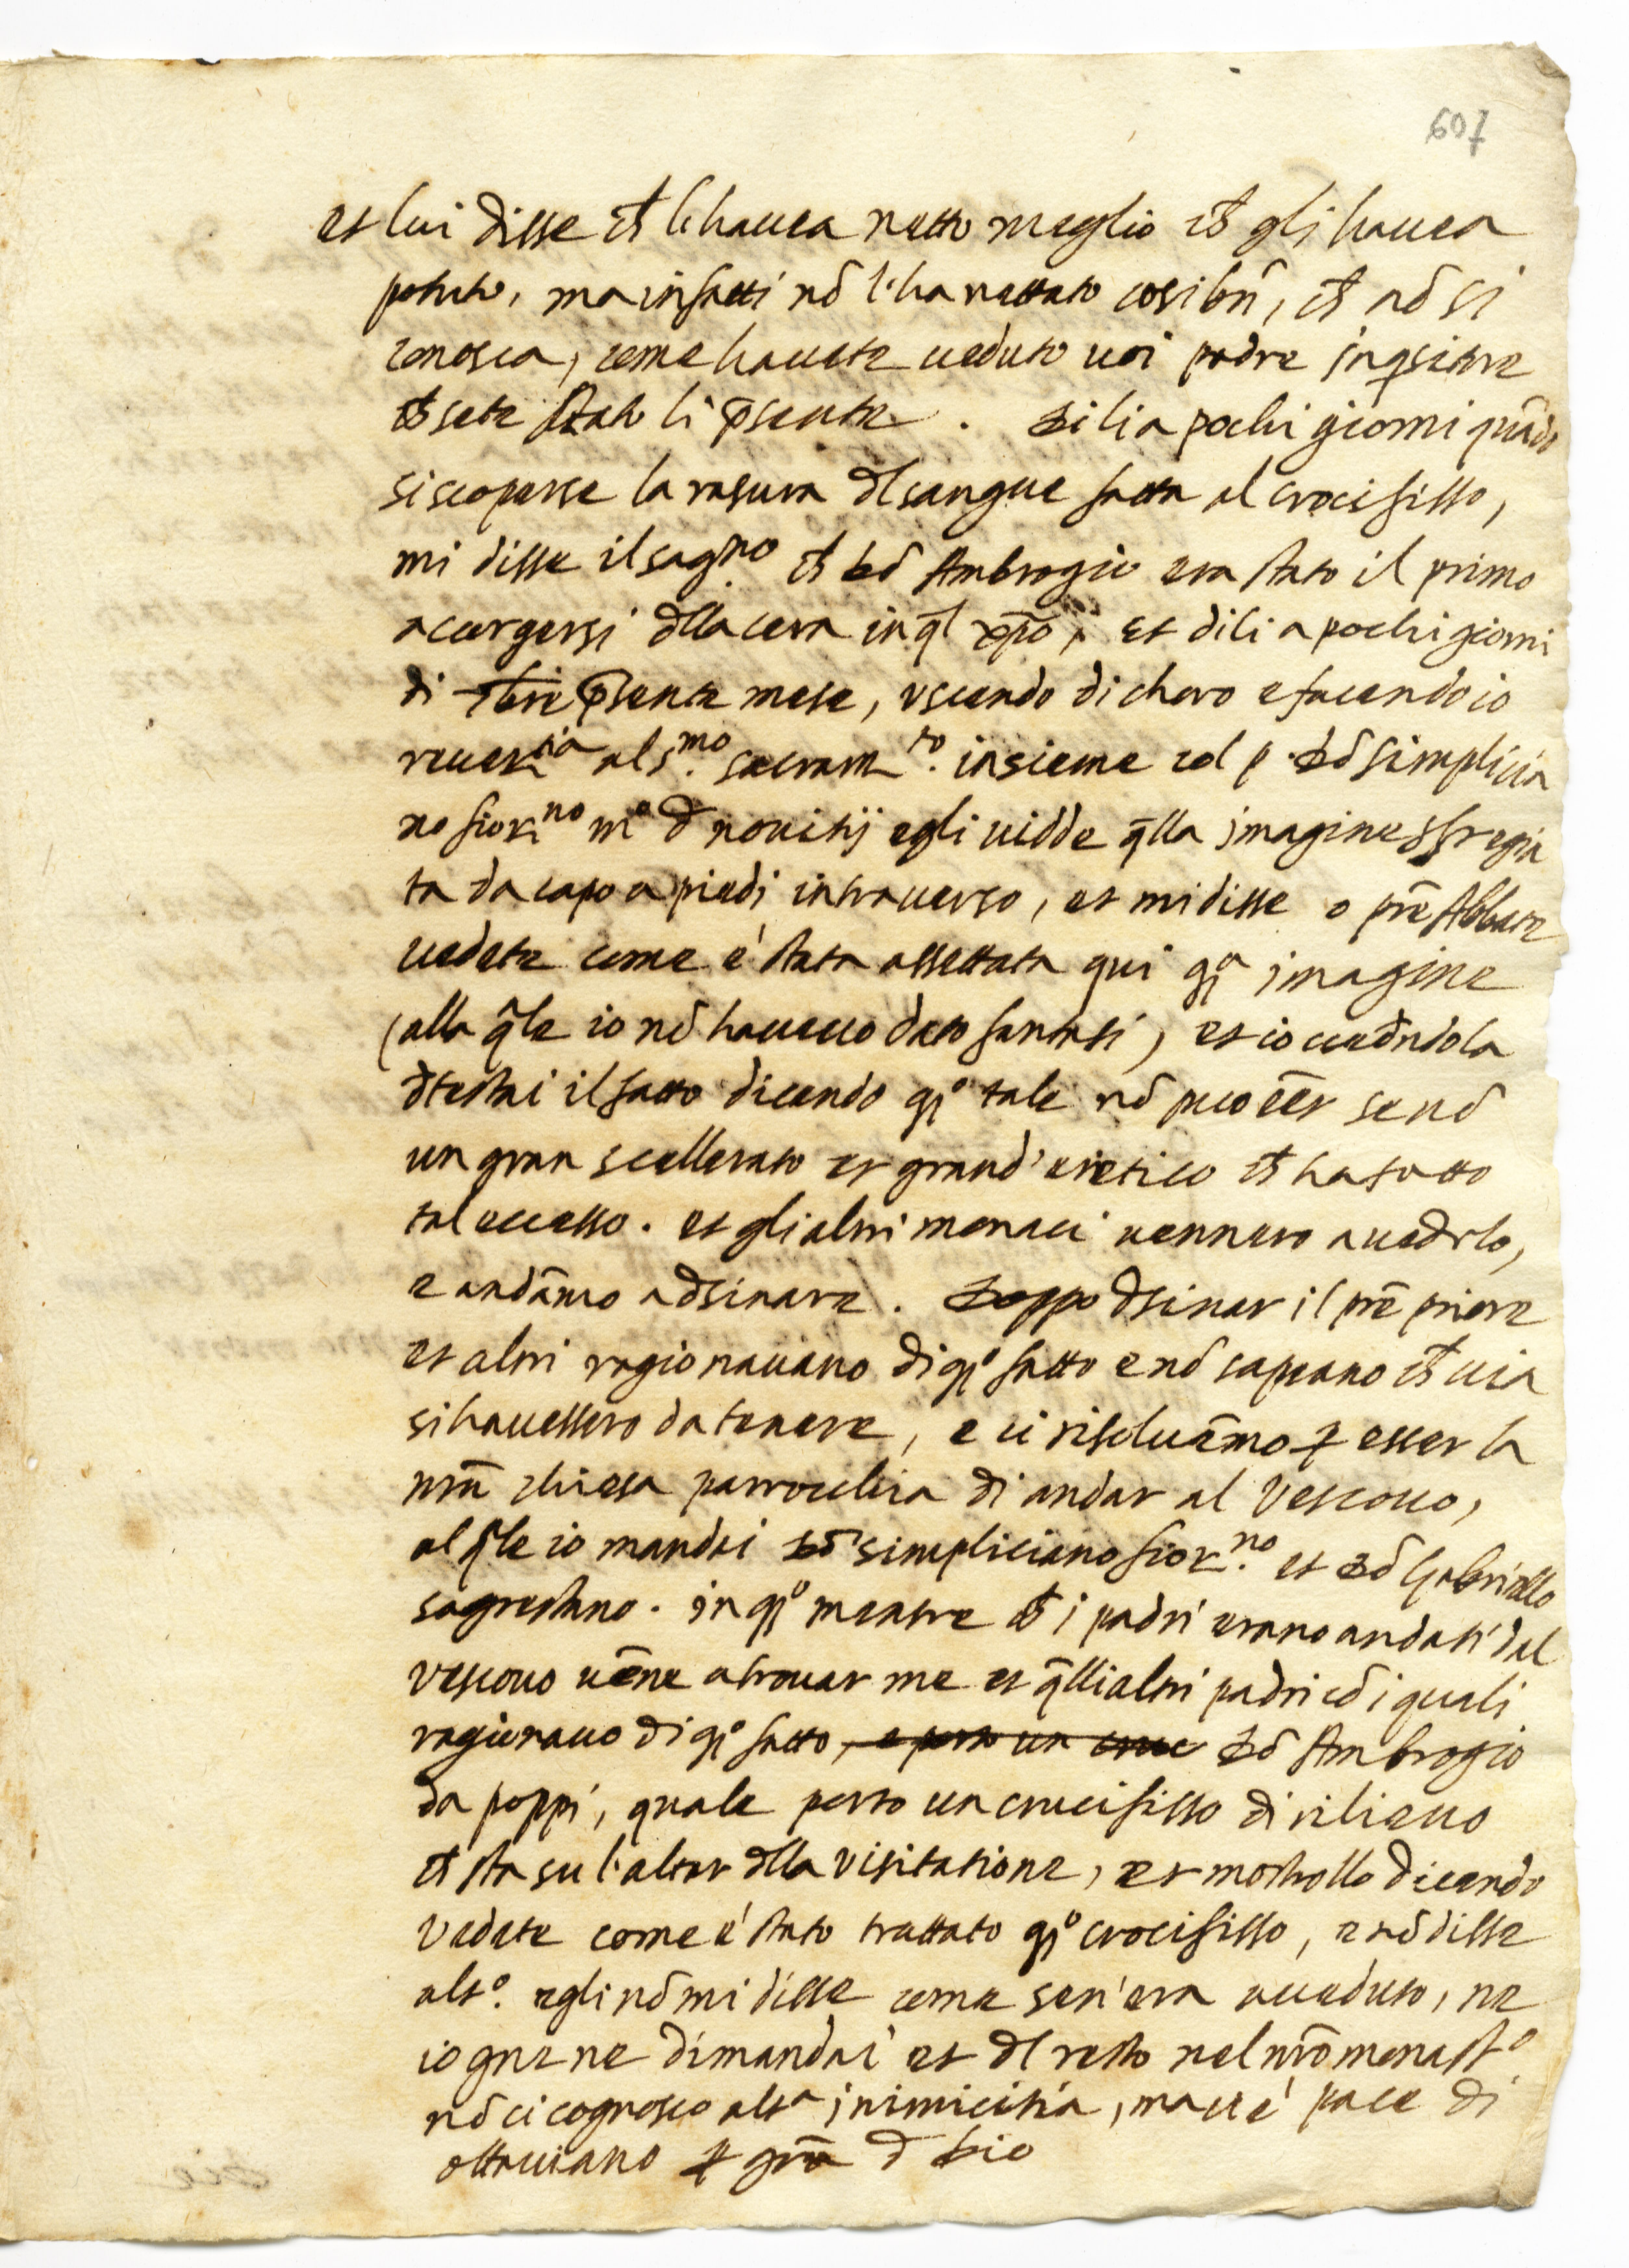 607
et lui disse ch̃ l'havea netto meglio ch̃ gli havea
potuto, ma in fatti nõ l'ha nettato cosi bñ, ch̃ nõ si
conosca, come havete veduto voi padre inqsitore
ch̃ sete stato li p̃sente. Di li a pochi giorni quãdo
si scoperse la rasura dl sangue fatta al crocifisso,
mi disse il sagrno ch̃ Dõ Ambrogio era stato il primo
accorgersi dlla cera in ql xp̃o, et di li a pochi giorni
di p̃sente mese, uscendo di choro e facendo io
reverntia al s.mo sacramto. insieme col p. Dõ Simplicia
no fiornno mo d novitij egli vidde q̃lla imagine sfregia
ta da capo a piedi intraverso, et mi disse o prẽ Abbate
vedete come é stata assettata qui qa imagine
(alla q̃le io nõ havevo dato fantasi) et io vedẽdola
dtestai il fatto dicendo qo tale nõ puo ẽer se nõ
un gran scellerato et grand'eretico ch̃ ha fatto
tal eccesso. et gli altri monaci vennero a vedrlo,
e andãmo a dsinare. Doppo dsinar il prẽ priore
et altri ragionavano di qo fatto e nõ sapeano ch̃ via
si havessero da tenere, e ci risoluẽmo p esser la
nrã chiesa parrochia di andar al Vescovo,
al q̃le io mandai Dõ Simpliciano fiorno. et Dõ Gabriello
sagrestano. in qo mentre ch̃ i padri erano andati dal
Vescovo vẽne a trovar me et q̃lli altri padri cõ i quali
ragionavo di qo fatto, e porto un cruc Dõ Ambrogio
da poppi, quale porto un crucifisso di rilievo
ch̃ sta su l'altar dlla visitatione, et mostrollo dicendo
Vedete come é stato trattato qo crocifisso, e nõ disse
alto. egli nõ mi disse come sen'era aveduto, ne
io gne ne dimandai et dl resto nel nrõ monasto
nõ ci cognosco alta inimicitia, ma ve' pace di
ottaviano p grã d Dio